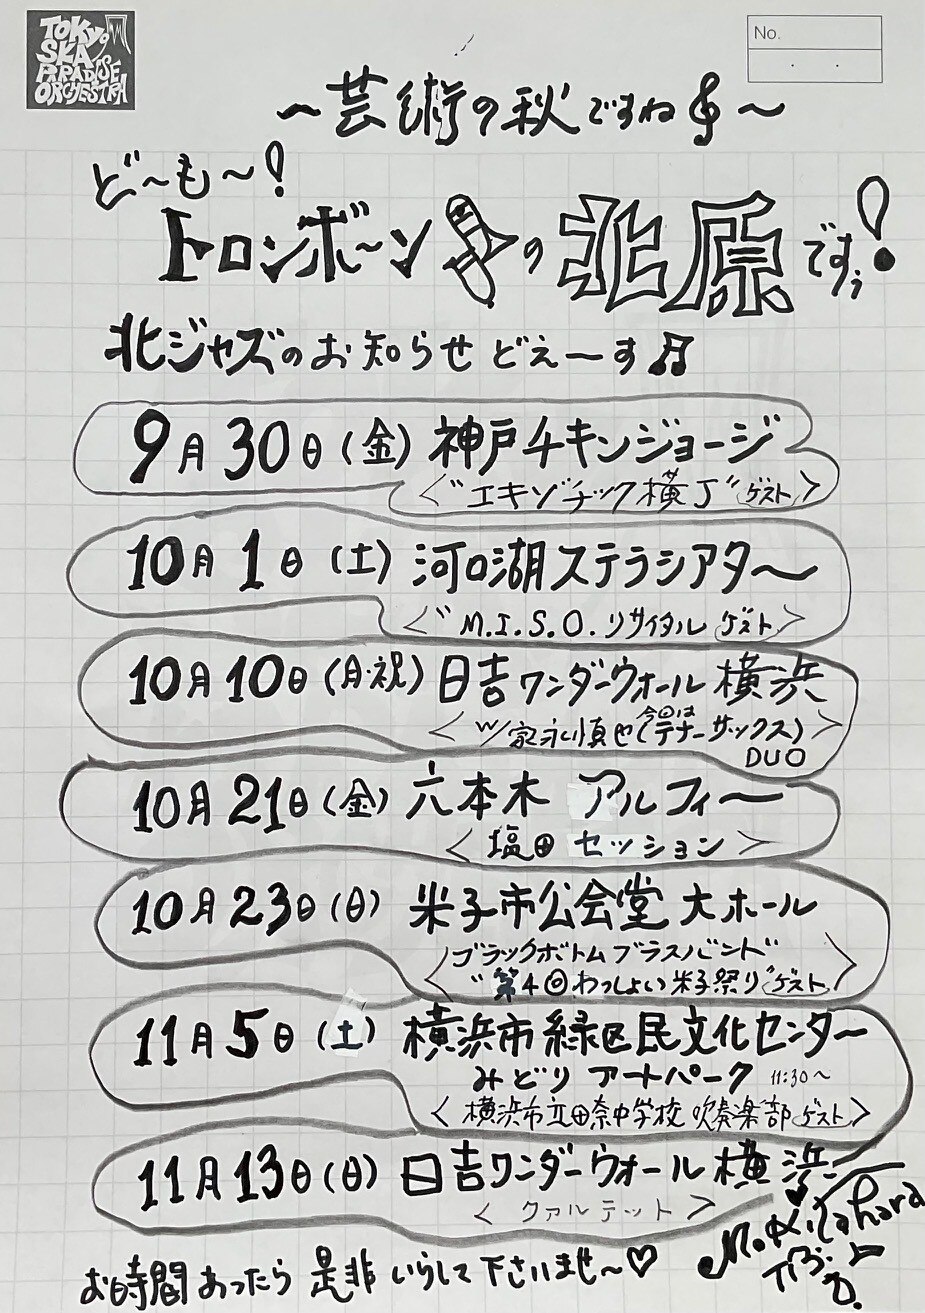 TOKYO
SKA
PARADISE
ORCHESTRA
No.
〜芸術の秋ですね〜
ど〜も〜!
トロンボ〜ンの北原ですぅ!
北ジャズのお知らせどぇーす♫
9月30日(金)神戸チキンジョージ
<"エキゾチック横丁"ゲスト>
10月1日(土)河口湖ステラシアター
<"M.I.S.O.リサイタルゲスト>
10月10日(月・祝)日吉ワンダーウォール横浜
<w/家永慎也(今回はテナーサックス)>
DUO
10月21日(金)六本木アルフィー
<塩田セッション>
10月23日(日)米子市公会堂大ホール
<ブラックボトムブラスバンド
"第4回わっしょい米子祭り"ゲスト>
11月5日(土)横浜市緑区民文化センター
みどりアートパーク 11:30〜
<横浜市立田奈中学校吹奏楽部ゲスト>
11月13日(日)日吉ワンダーウォール横浜
<クァルテット>
お時間あったら是非いらして下さいませ〜♡
M. Kitahara